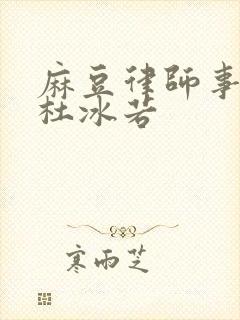 麻豆律師事
杜冰若
寒雨芝